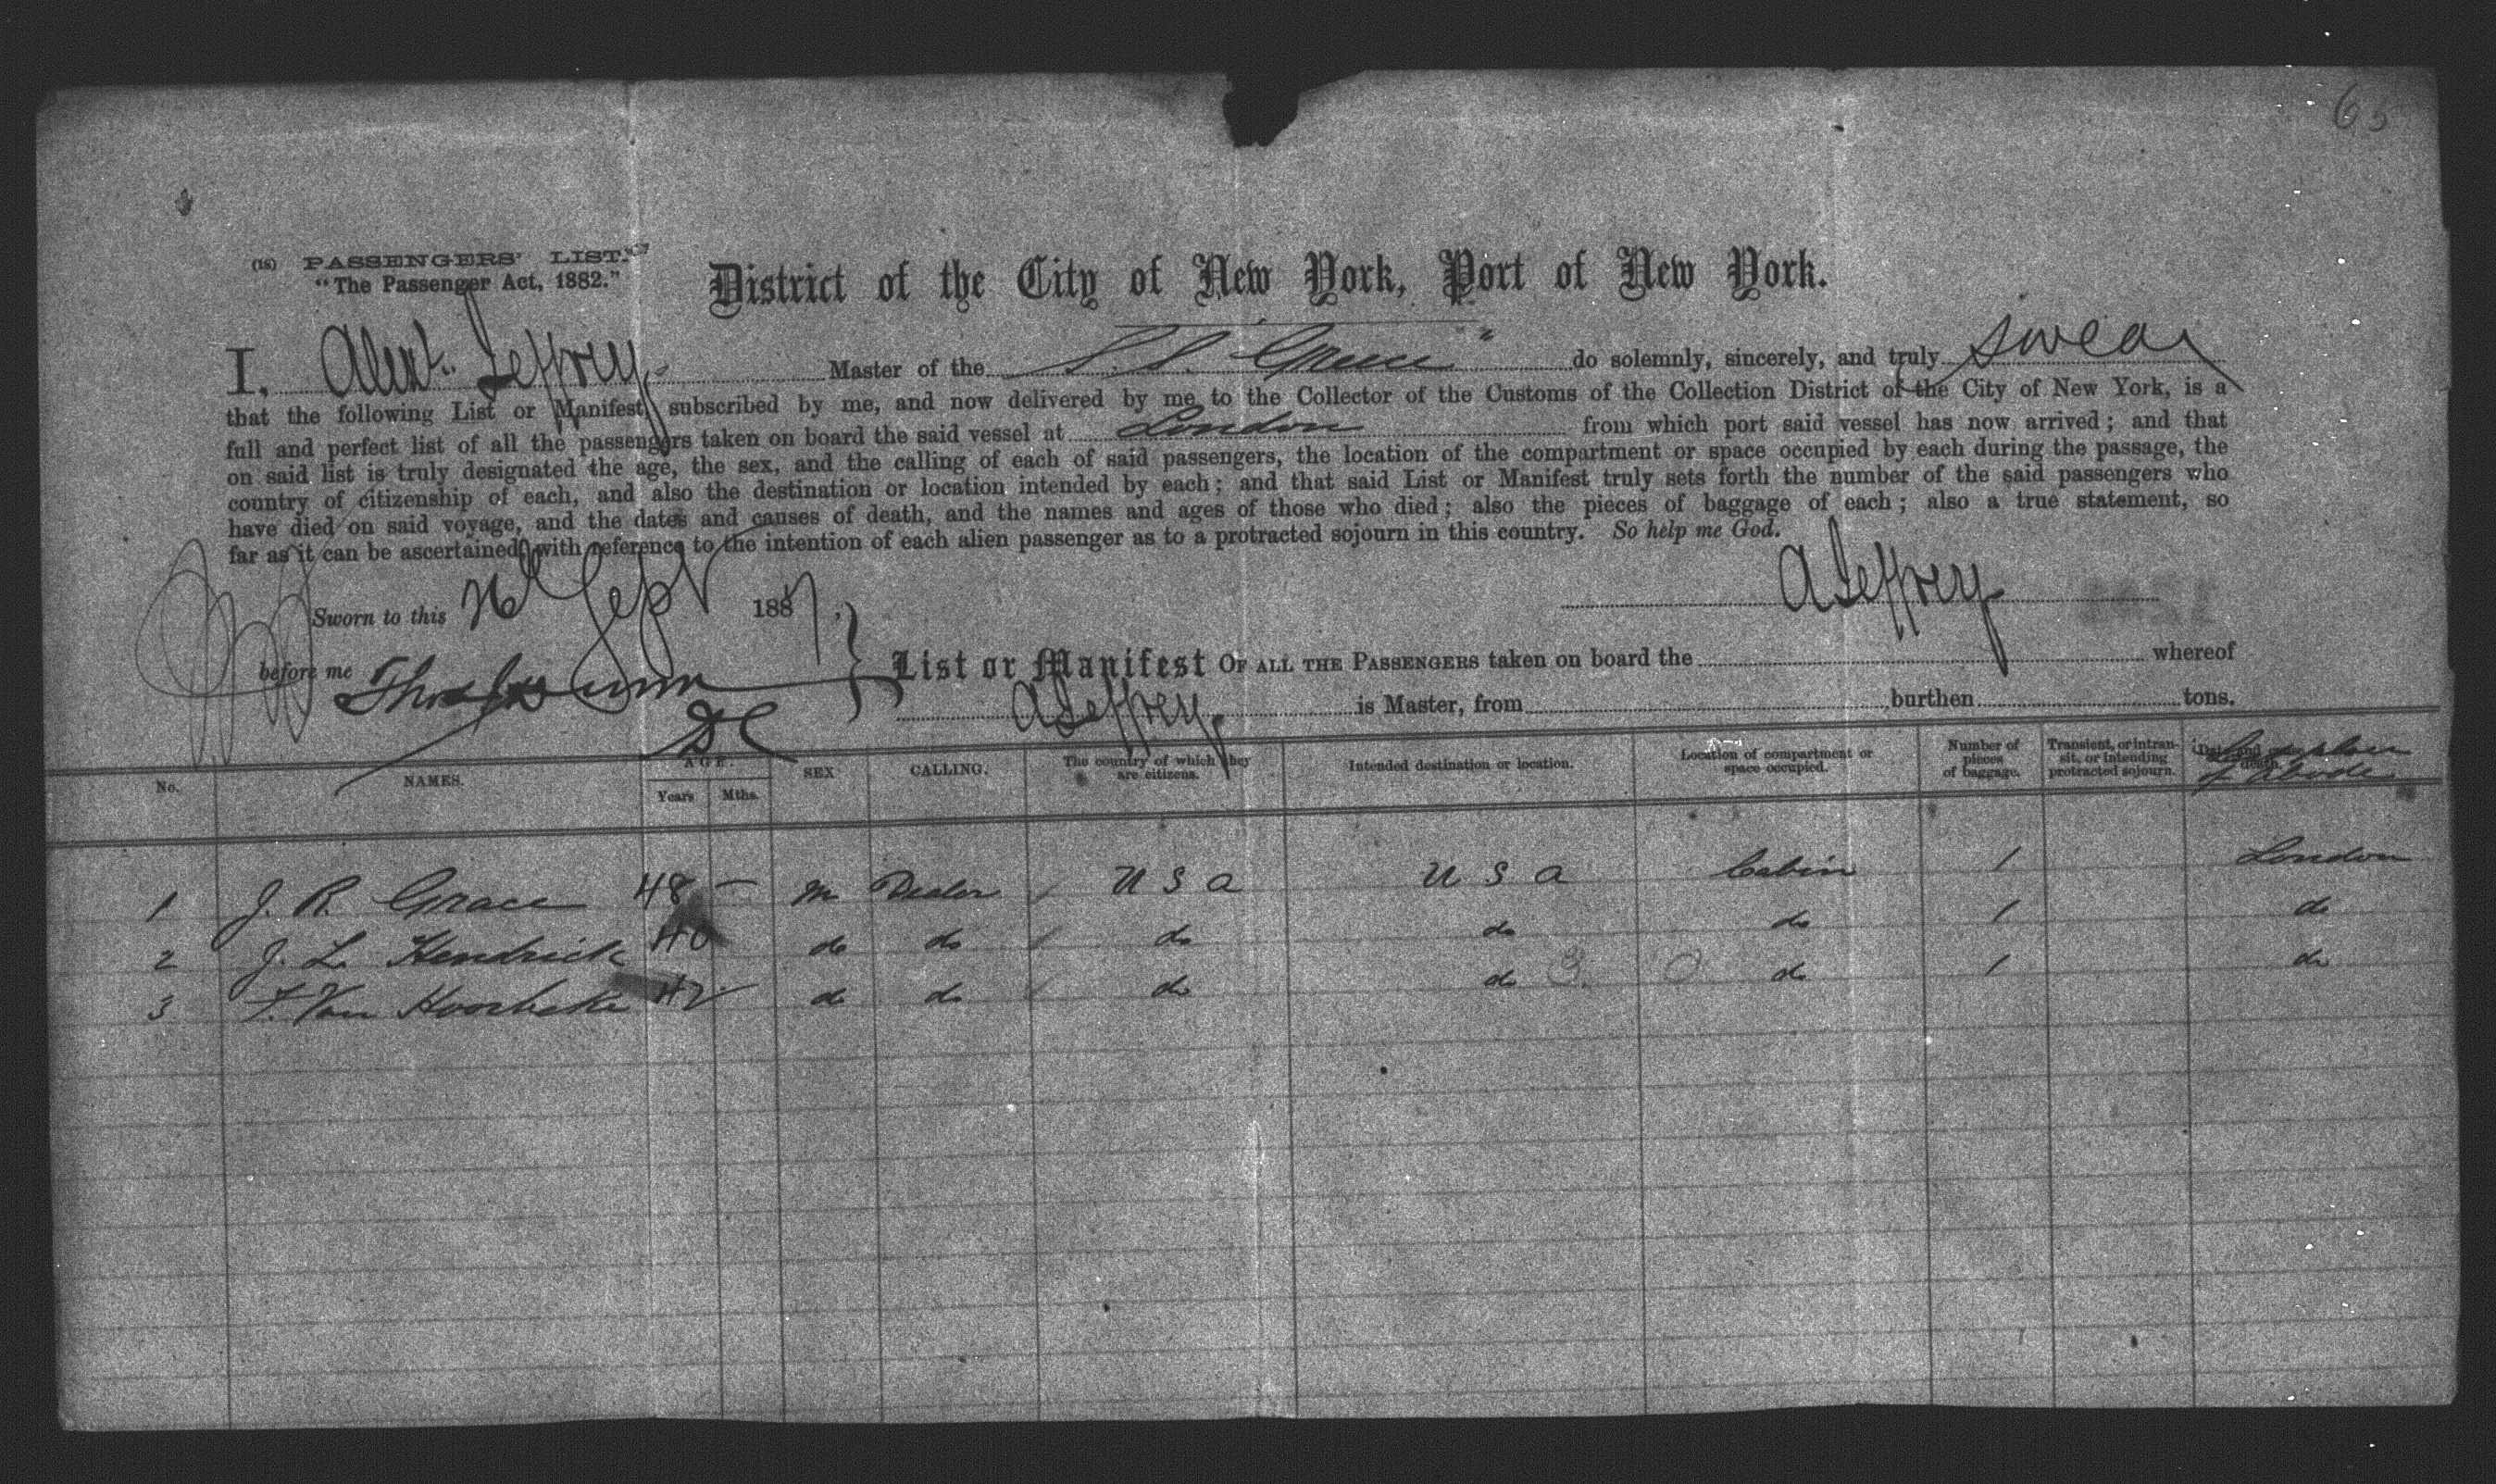 65
(18) PASSENGERS' LIST.
"The Passenger Act, 1882."
District of the City of New York, Port of New York.
I, Alext. Jeffrey, Master of the S.S. Greece" do solemnly, sincerely, and truly swear
that the following List or Manifest, subscribed by me, and now delivered by me to the Collector of the Customs of the Collection District of the City of New York, is a
full and perfect list of all the passengers taken on board the said vessel at London from which port said vessel has now arrived; and that
on said list is truly designated the age, the sex, and the calling of each of said passengers, the location of the compartment or space occupied by each during the passage, the
country of citizenship of each, and also the destination or location intended by each; and that said List or Manifest truly sets forth the number of the said passengers who
have died on said voyage, and the dates and causes of death, and the names and ages of those who died; also the pieces of baggage of each; also a true statement, so
far as it can be ascertained, with reference to the intention of each alien passenger as to a protracted sojourn in this country. So help me God.
A Jeffrey
Sworn to this 26 Sept 1887,
before me Thos
DC
List or Manifest OF ALL THE PASSENGERS taken on board the whereof
A Jeffrey, is Master, from burthen tons.
No. NAMES. AGE. Years Mths. SEX CALLING. The country of which they are citizens. Intended destination or location. Location of compartment or space occupied. Number of pieces of baggage. Transient, or intransit, or intending protracted sojourn. place of Abode
1 J. R. Grace 48 — m Dealer U S A U S A Cabin 1 London
2 J. L. Hendrick 40 do do do do do 1 do
3 F. Van Hoorbeke 42 do do do do do 1 do
3. 0